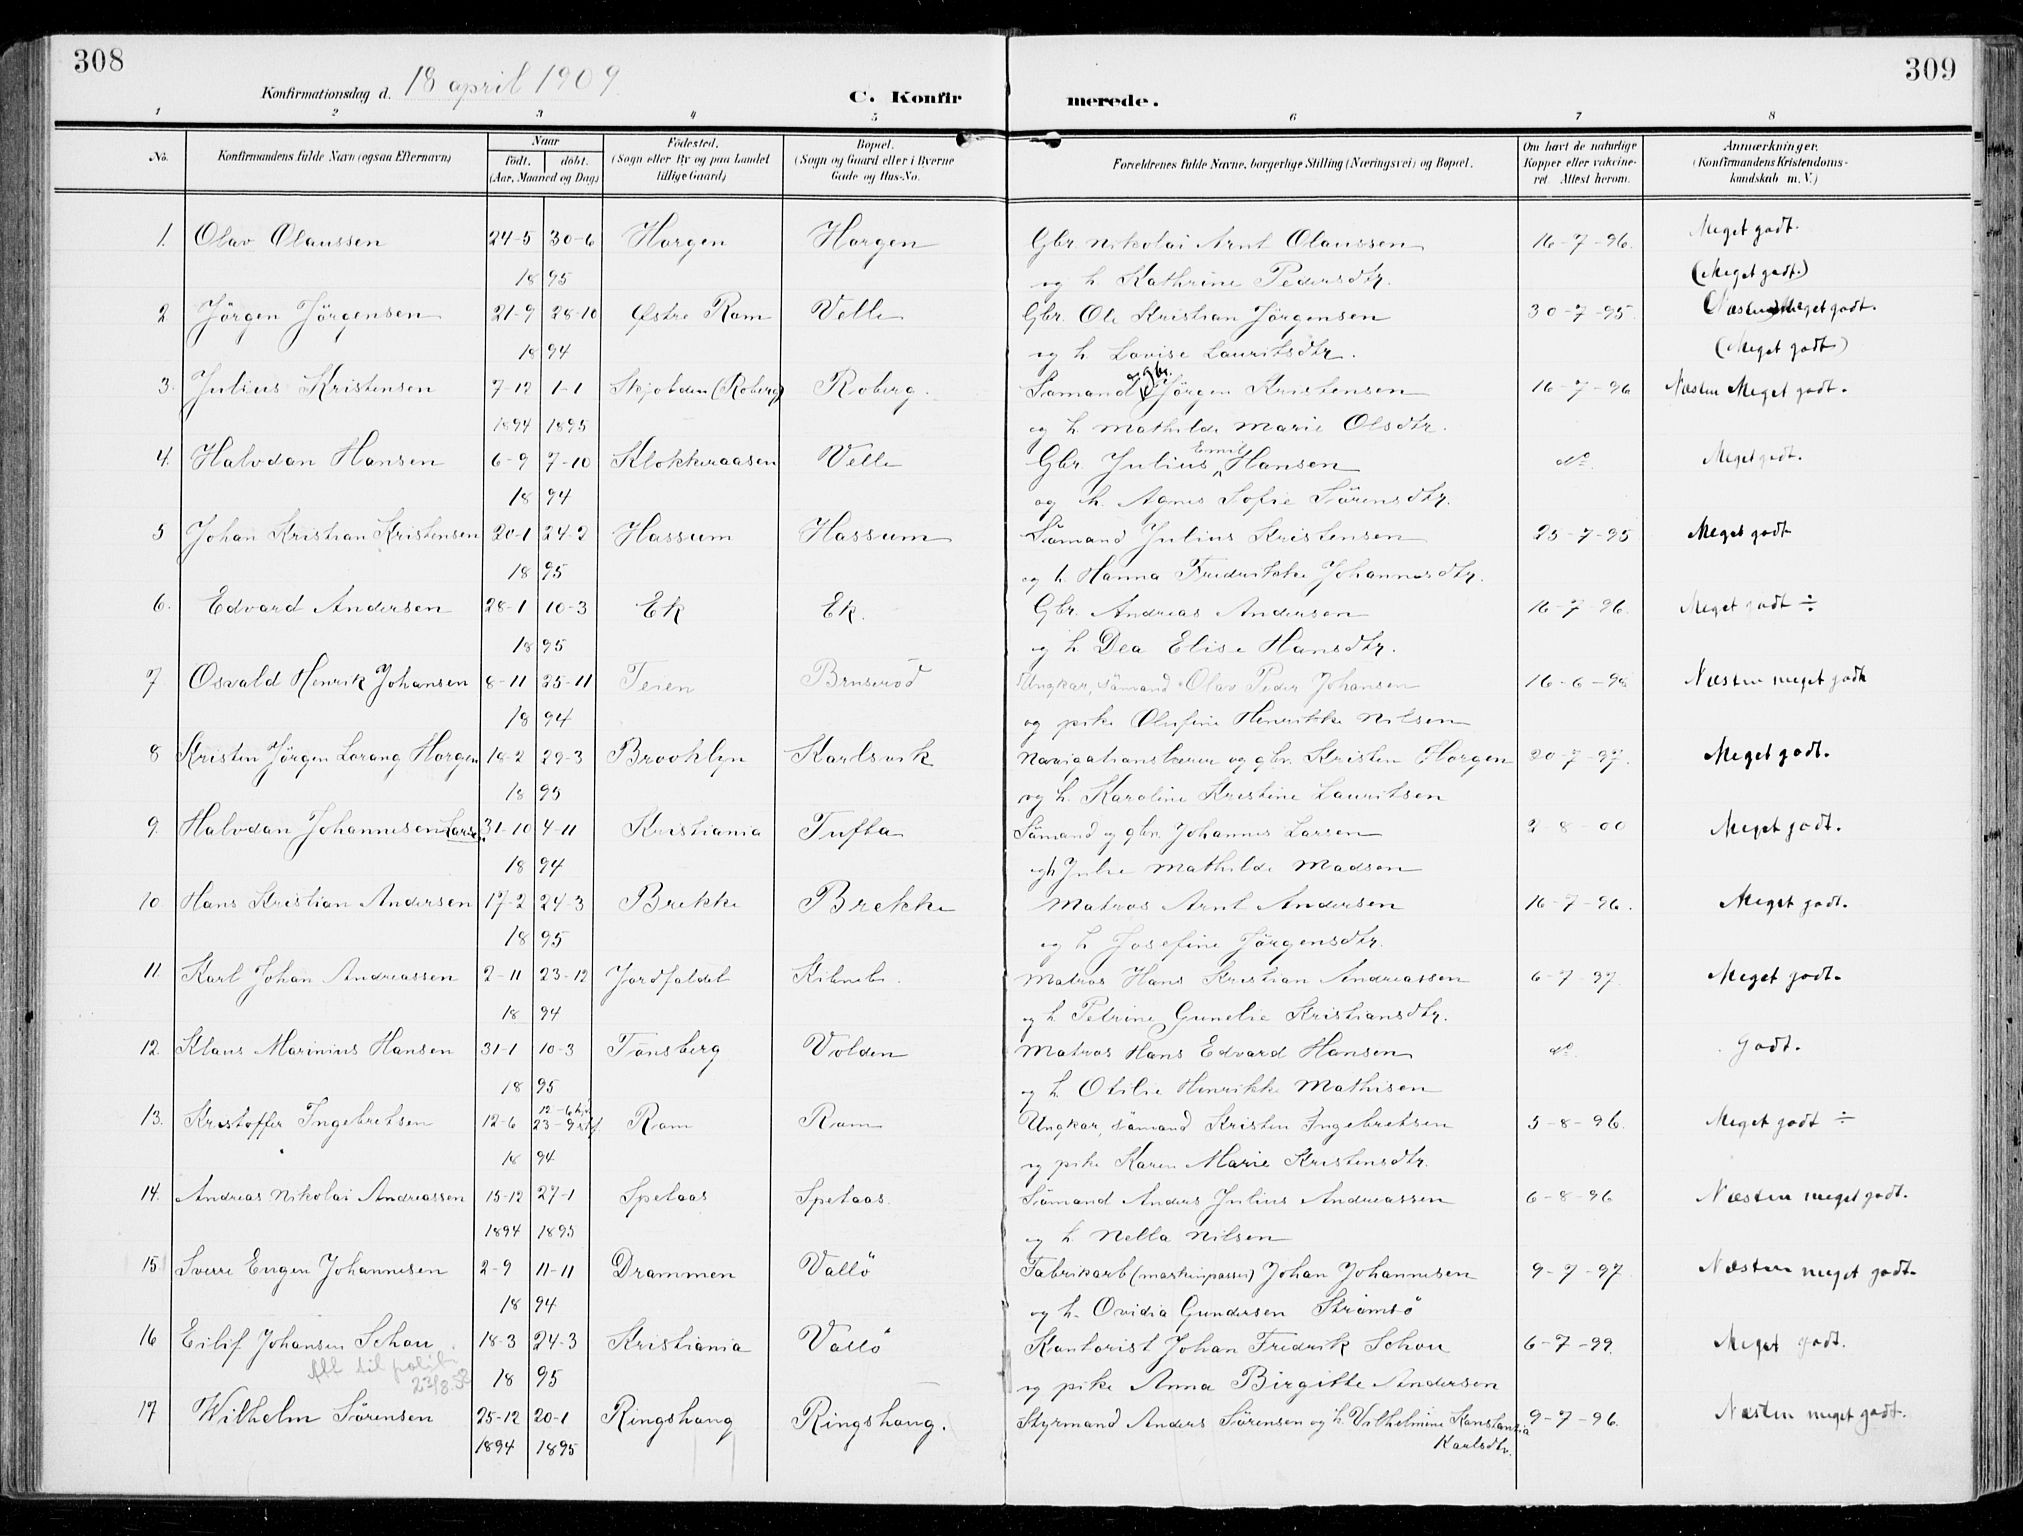 308
309
Konfirmationsdag d. 18 april 1909.
C. Konfirmerede.
1 2 3 4 5 6 7 8
No. Konfirmandens fulde Navn (ogsaa Efternavn) Naar Fødested. Bopæl. Forældrenes fulde Navne, borgerlige Stilling (Næringsvei) og Bopæl. Om havt de naturlige Anmærkninger.
født. døbt. (Sogn eller By og paa Landet (Sogn og Gaard eller i Byerne Kopper eller vakcine- (Konfirmandens Kristendoms-
(Aar, Maaned og Dag) tillige Gaard) Gade og Hus-No. ret. Attest herom. kundskab m. V.)
1. Olav Olaussen 24-5 30-6 Horgen Horgen Gbr. Nikolai Arnt Olaussen 16-7-96. Meget godt.
18 95 og h. Kathrine Pedersdtr. (Meget godt.)
2 Jörgen Jörgensen 21-9 28-10 Østre Ram Velle Gbr. Ole Kristian Jörgensen 30-7-95. Næsten Meget godt.
18 94 og h. Lovise Lauritsdtr. (Meget godt)
3. Julius Kristensen 7-12 1-1 Skjotden (Roberg) Roberg. Sömand og gbr. Jörgen Kristensen 16-7-96 Næsten Meget godt.
1894 1895 og h. Mathilde Marie Olsdtr.
4. Halvdan Hansen 6-9 7-10 Klokkeraasen Velle Gbr. Julius Emil Hansen do. Meget godt.
18 94 og h. Agnes Sofie Sörensdtr.
5 Johan Kristian Kristensen 20-1 24-2 Hassum Hassum Sömand Julius Kristensen 25-7-95 Meget godt
18 95 og h. Hanna Fredrikke Johannesdtr.
6. Edvard Andersen 28-1 10-3 Ek Ek. Gbr. Andreas Andersen 16-7-96. Meget godt ÷
18 95 og h Dea Elise Hansdtr.
7. Osvald Henrik Johansen 8-11 25-11 Teien Bruseröd Ungkar, sömand Olav Peder Johansen 16-6-98 Næsten meget godt
18 94 og pike Olufine Henrikke Nilsen
8 Kristen Jörgen Lorang Horgen 18-2 29-3 Brooklyn Karlsvik Navigationslærer og gbr. Kristen Horgen 20-7-97. Meget godt.
18 95 og h. Karoline Kristine Lauritsen
9. Halvdan Johannesen Larsen 31-10 4-11 Kristiania Tufta Sömand og gbr. Johannes Larsen 2-8-00 Meget godt.
18 94 og h Julie Mathilde Madsen
10. Hans Kristian Andersen 17-2 24-3 Brekke Brekke Matros Arnt Andersen 16-7-96. Meget godt.
18 95 og h. Josefine Jörgensdtr.
11. Karl Johan Andreassen 2-11 23-12 Jordfaldet Kilneb. Matros Hans Kristian Andreassen 6-7-97. Meget godt.
18 94 og h Petrine Gunelie Kristiansdtr.
12. Klaus Marinius Hansen 31-1 10-3 Tönsberg Volden Matros Hans Edvard Hansen do. Godt.
18 95 og h. Otilie Henrikke Mathisen
13. Kristoffer Ingebretsen 12-6 12-6 hjd 23-9 stf Ram Ram Ungkar, sömand Kristen Ingebretsen 5-8-96. Meget godt ÷
18 94 og pike Karen Marie Kristensdtr.
14. Andreas Nikolai Andreassen 15-12 27-1 Spetaas Spetaas. Sömand Anders Julius Andreassen 6-8-96 Næsten meget godt.
1894 1895 og h. Nella Nilsen
15 Sverre Eugen Johannesen 2-9 11-11 Drammen Vallö Fabrikarb (maskinpasser) Johan Johannesen 9-7-97. Næsten meget godt.
18 94 og h. Ovidia Gundersen Strömsö
16 Eilif Johansen Schou 18-3 24-3 Kristiania Vallö Kontorist Johan Fredrik Schou 6-7-99. Meget godt.
Att til politi 23/8.52 18 95 og pike Anna Birgitte Andersen
17 Wilhelm Sörensen 25-12 20-1 Ringshaug Ringshaug. Styrmand Anders Sörensen og h. Vilhelmine Konstantia 9-7-96. Næsten meget godt.
1894 1895 Karlsdtr.